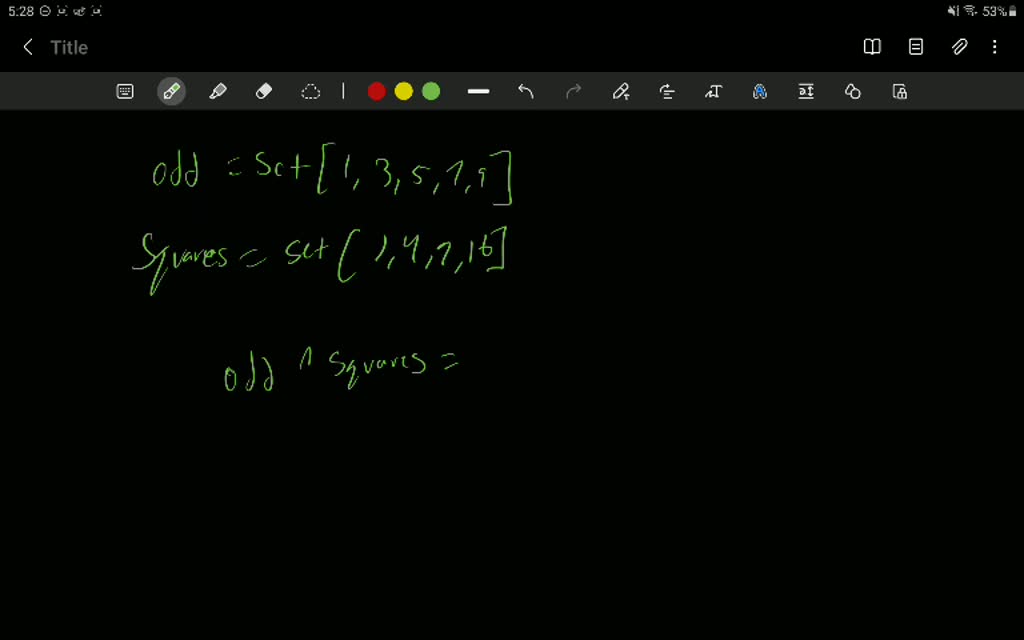 5:28 53%
Title
odd = set[1, 3, 5, 7, 9]
Squares = set[1, 4, 9, 16]
odd ^ squares =